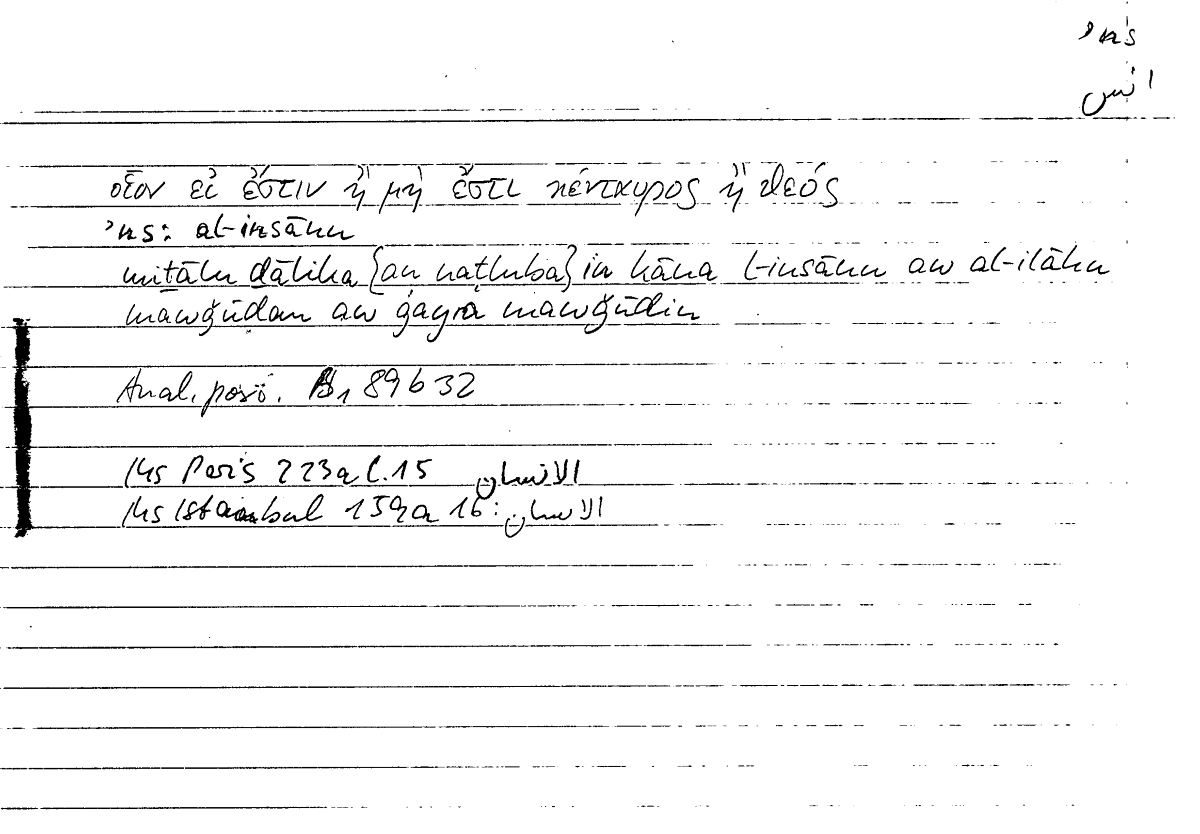 ʾns
انس
οἷον εἰ ἔστιν ἢ μὴ ἔστι κένταυρος ἢ θεός
ʾns: al-insānu
miṯālu ḏālika {an naṭluba} in kāna l-insānu aw al-ilāhu
mawǧūdan aw ġayra mawǧūdin
Anal. post. B1 89b32
Ms Paris 223a l.15 الانسان
Ms Istanbul 159a 16: الانسان